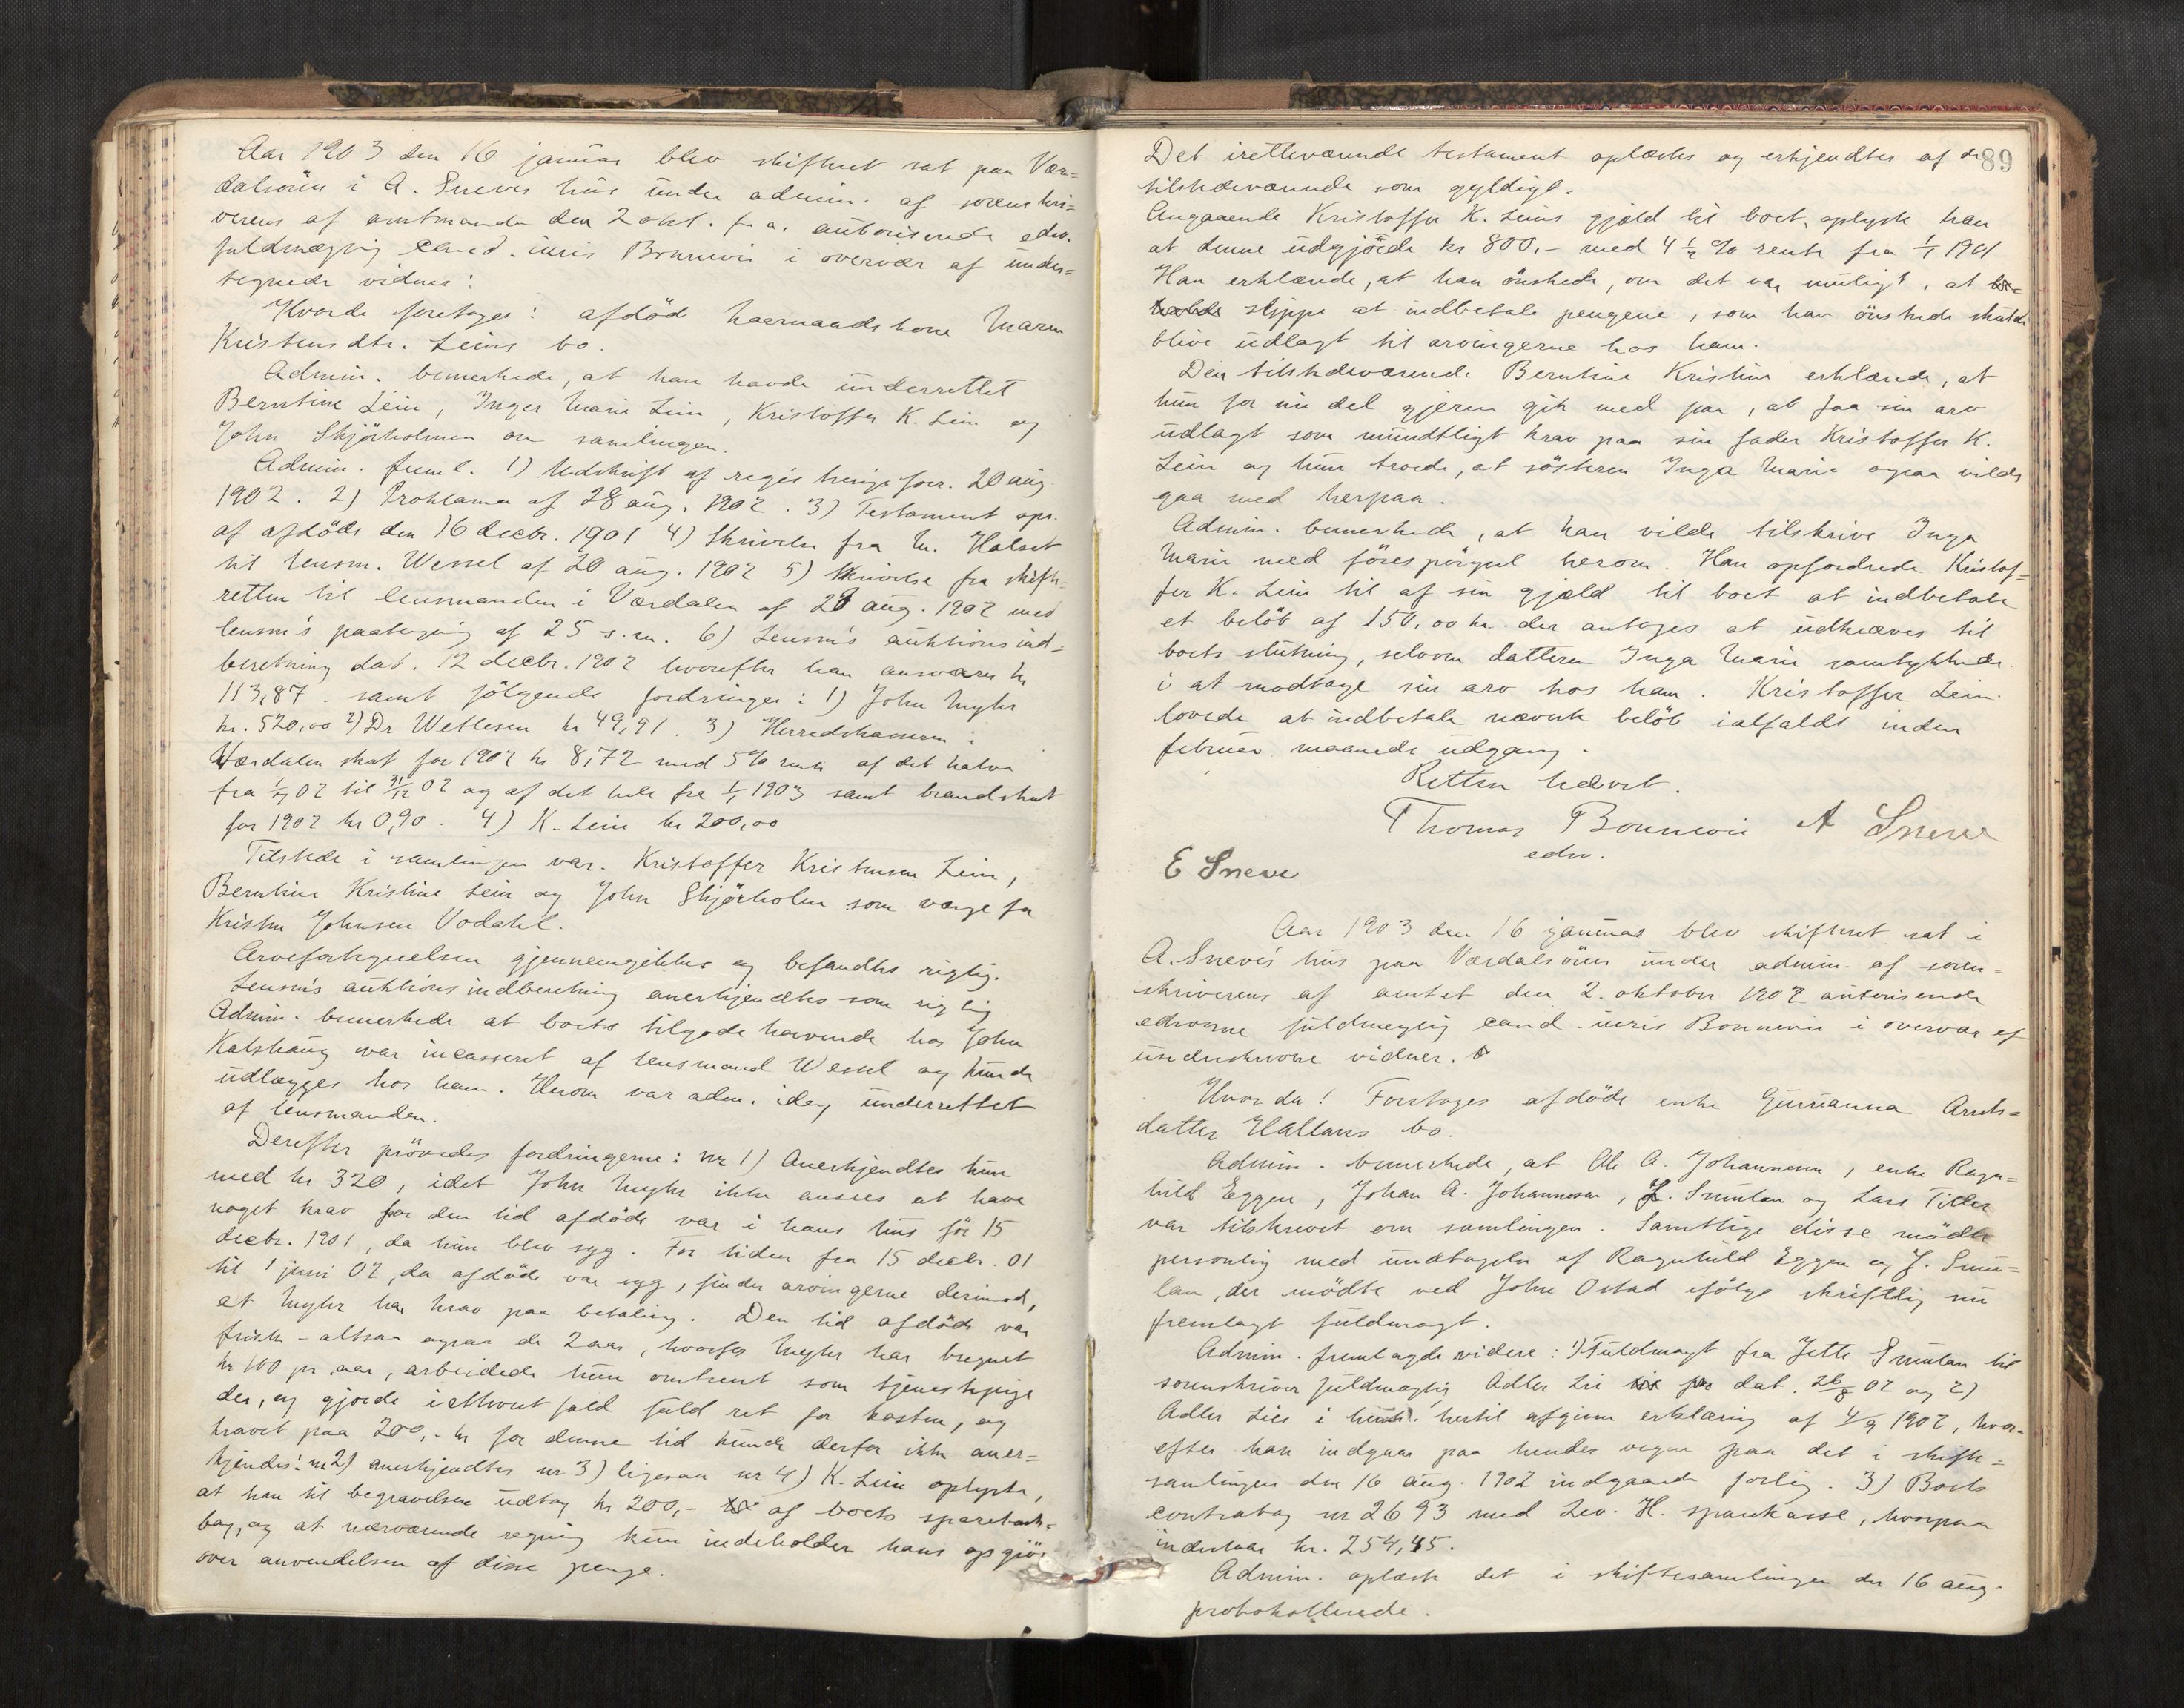 Aar 1903 den 16 januar blev skifteret sat paa Vær=
dalsøren i A. Sneves hus under admin. af sorenskri=
verens af amtmanden den 2 okt. f. a. autoriserede edsv.
fuldmægtig cand. juris Bonnevie i overvær af under=
tegnede vidner:
Hvorda foretoges: afdöd kaarmandskone Maren
Kristensdtr. Leins bo.
Admin. bemerkede, at han havde underrettet
Berntine Lein, Inger Marie Lein, Kristoffer K. Lein og
John Skjörholmen om samlingen.
Admin. freml. 1) Udskrift af registreringsforr. 20 aug.
1902. 2) Proklama af 28 aug. 1902. 3) Testament opr.
af afdöde den 16 decbr. 1901 4) Skrivelse fra M. Holset
til lensm. Wessel af 20 aug. 1902 5) Skrivelse fra skifte-
retten til lensmanden i Værdalen af 21 aug. 1902 med
lensm's paategning af 25 s. m. 6) Lensm's auktionsind=
beretning dat. 12 decbr. 1902 hvorefter han ansvarer kr
113,87. samt fölgende fordringer: 1) John Myhr
kr. 520,00 2) Dr Wettesen kr 49,91. 3) Herredskassren i
Værdalen skat for 1902 kr 8,72 med 5% rente af det halve
fra 1/7 02 til 31/12 02 og af det hele fra 1/1 1903 samt brandskat
for 1902 kr 0,90. 4) K. Lein kr 200,00
Tilstede i samlingen var. Kristoffer Kristensen Lein,
Berntine Kristine Lein og John Skjörholm som værge for
Kristen Johnsen Vodahl.
Arvefortegnelsen gjennemgikkes og befandtes rigtig.
Lensm's auktionsindberetning anerkjendtes som rigtig
Admin. bemerkede at boets tilgodehavende hos John
Kalshaug var incasseret af lensmand Wessel og kunde
udlægges hos ham. Herom var adm. idag underrettet
af lensmanden.
Derefter prövedes fordringerne: nr 1) Anerkjendtes kun
med kr 320, idet John Myhr ikke ansees at have
noget krav for den tid afdöde var i hans hus för 15
decbr. 1901, da hun blev syg. For tiden fra 15 decbr. 01
til 1 juni 02, da afdöde var syg, finder arvingerne derimod,
at Myhr har krav paa betaling. Den tid afdöde var
frisk - altsaa ogsaa de 2 aar, hvorfor Myhr har beregnet
kr 100 pr. aar, arbeidede hun omtrent som tjenestepige
der, og gjorde i ethvert fald fuld ret for kosten, og
kravet paa 200,- kr for denne tid kunde derfor ikke aner=
kjendes. nr 2) anerkjendtes nr 3) ligesaa nr 4) K. Lein oplyste,
at han til begravelsen udtog kr 200,- af boets sparebank=
bog, og at nærværende regning kun indeholder hans opgjör
over anvendelsen af disse penge.
89
Det iretteværende testament oplæstes og erkjendtes af de
tilstedeværende som gyldigt.
Angaaende Kristoffer K. Leins gjæld til boet, oplyste han
at denne udgjörde kr 800,- med 4 1/2 % rente fra 1/1 1901
Han erklærede, at han önskede, om det var muligt, at
slippe at indbetale pengene, som han önskede skulde
blive udlagt til arvingerne hos ham.
Den tilstedeværende Berntine Kristine erklærede, at
hun for sin del gjerne gik med paa, at faa sin arv
udlagt som mundtligt krav paa sin fader Kristoffer K.
Lein og hun troede, at sösteren Inga Marie ogsaa vilde
gaa med herpaa.
Admin. bemerkede, at han vilde tilskrive Inga
Marie med förespörgsel herom. Han opfordrede Kristof=
fer K. Lein til af sin gjæld til boet at indbetale
et belöb af 150,00 kr. der antages at udkræves til
boets slutning, selvom datteren Inga Marie samtykkede
i at modtage sin arv hos ham. Kristoffer Lein
lovede at indbetale nævnte belöb ialfaldt inden
februar maaneds udgang.
Retten hævet.
Thomas Bonnevie A Sneve
edsv.
E Sneve
Aar 1903 den 16 januar blev skifteret sat i
A. Sneve's hus paa Værdalsören under admin. af soren=
skriverens af amtet den 2. oktober 1902 autoriserede
edsvorne fuldmægtig cand. juris Bonnevie i overvær af
underskrevne vidner.
Hvorda! Foretoges afdöde enke Gurianna Arnts=
datter Hallans bo.
Admin. bemerkede, at Ole A. Johannesen, enke Ragn=
hild Eggen, Johan A. Johannesen, J. Smulan og Lars Titler
var tilskrevet om samlingen. Samtlige disse mödte
personlig med undtagelse af Ragnhild Eggen og J. Smu=
lan, der mödte ved John Ostad ifölge skriftlig nu
fremlagt fuldmagt.
Admin. fremlagde videre: 1) Fuldmagt fra Jette Smulan til
sorenskriver fuldmægtig Adler Lie dat. 26/8 02 og 2)
Adler Lies i hertil afgivne erklæring af 4/9 1902, hvor=
efter han indgaar paa hendes vegne paa det i skifte=
samlingen den 16 aug. 1902 indgaaede forlig. 3) Boets
contrabog nr 2693 med Lev. H. sparekasse, hvorpaa
indestaar kr. 254,45.
Admin. oplæste det i skiftesamlingen den 16 aug.
protokollerede.